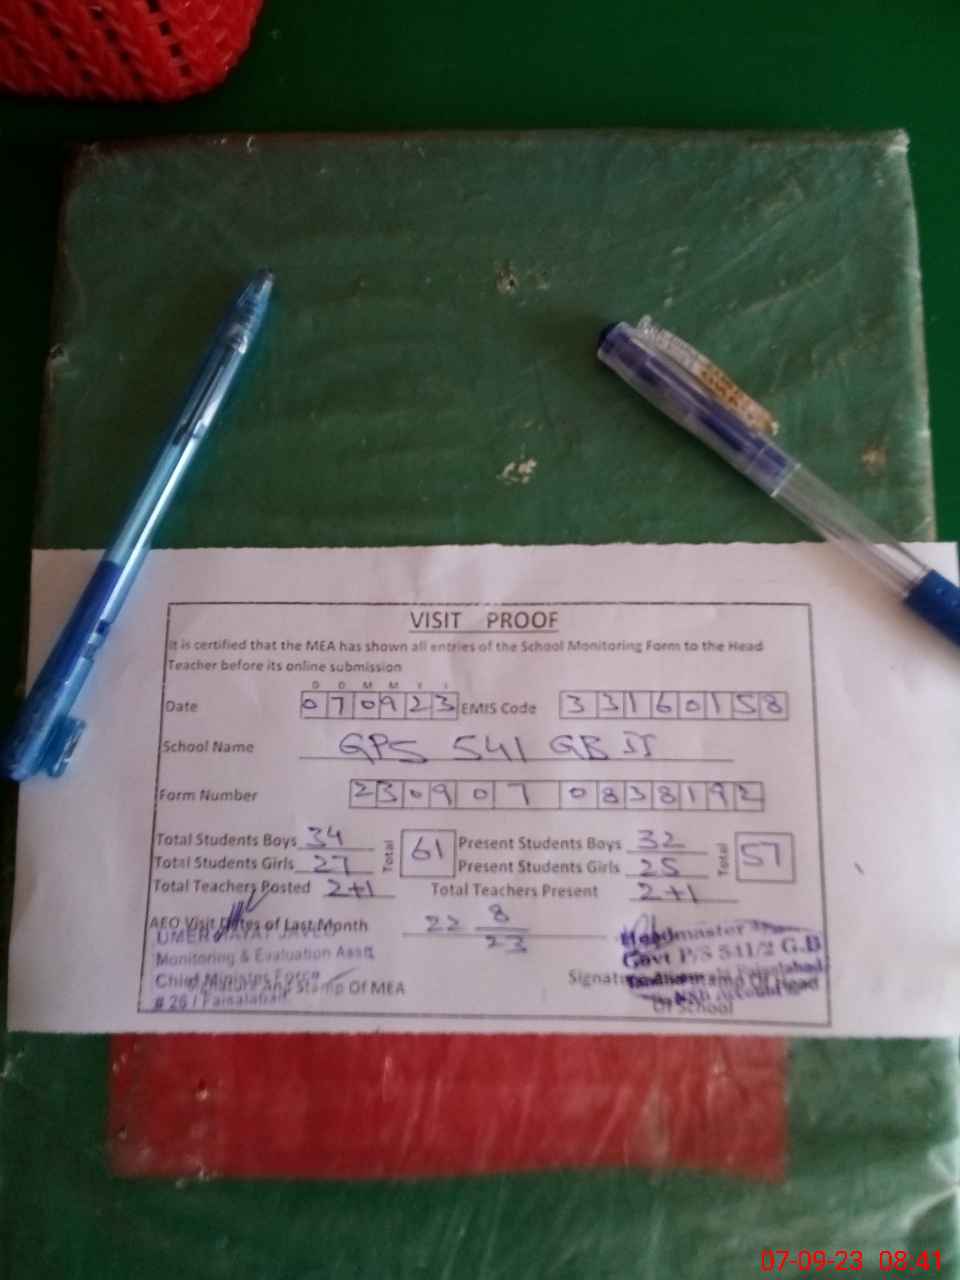 VISIT PROOF
It is certified that the MEA has shown all entries of the School Monitoring Form to the Head
Teacher before its online submission
D D M M Y Y
Date 070923 EMIS Code 33160158
School Name GPS 541 GB II
Form Number 230907 0838192
Total Students Boys 34 Total 61 Present Students Boys 32 Total 57
Total Students Girls 27 Present Students Girls 25
Total Teachers Posted 2+1 Total Teachers Present 2+1
AEO Visit Dates of Last Month 22 8 23
UMER HAYAT JAVED
Monitoring & Evaluation Asstt
Chief Minister Force
# 26 / Faisalabad
Signature And Stamp Of MEA
Headmaster
Govt P/S 541/2 G.B
Signature And Stamp Of Head
Of School
07-09-23 08:41